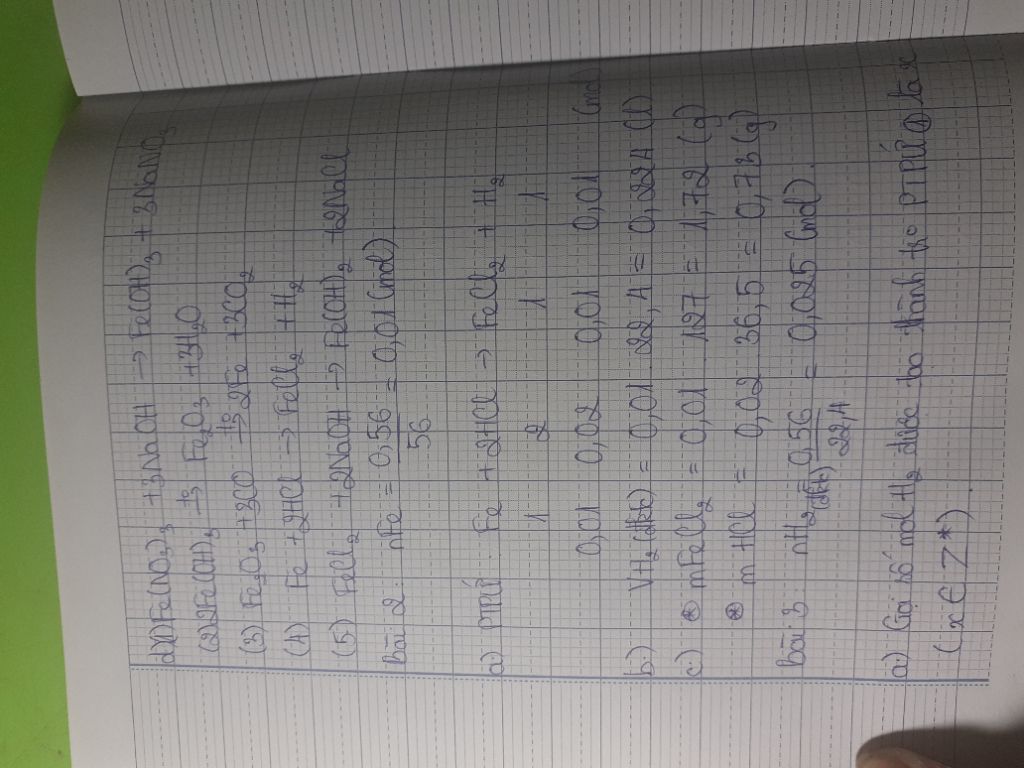 d) (1) Fe(NO3)3 + 3NaOH → Fe(OH)3 + 3NaNO3
(2) 2Fe(OH)3 t° → Fe2O3 + 3H2O
(3) Fe2O3 + 3CO t° → 2Fe + 3CO2
(4) Fe + 2HCl → FeCl2 + H2
(5) FeCl2 + 2NaOH → Fe(OH)2 + 2NaCl
bài 2: nFe = 0,56/56 = 0,01 (mol)
a) PTPỨ: Fe + 2HCl → FeCl2 + H2
1 2 1 1
0,01 0,02 0,01 0,01 (mol)
b) VH2 (đktc) = 0,01 . 22,4 = 0,224 (l)
c) mFeCl2 = 0,01 . 127 = 1,72 (g)
mHCl = 0,02 . 36,5 = 0,73 (g)
bài 3 nH2 (đktc) = 0,56/22,4 = 0,025 (mol)
a) Gọi số mol H2 được tạo thành PTPỨ ① là x
(x ∈ Z*)